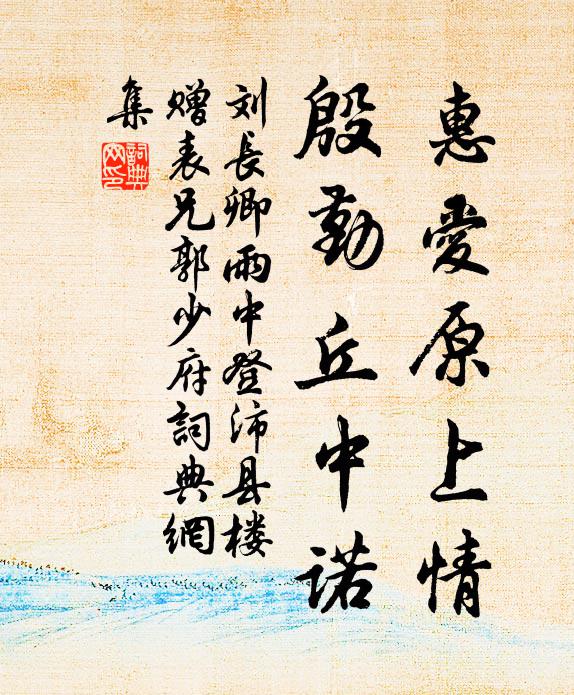 惠愛原上情
殷勤丘中諾
刘長卿雨中登沛县楼
赠表兄郭少府詞典網
集
詞典網印